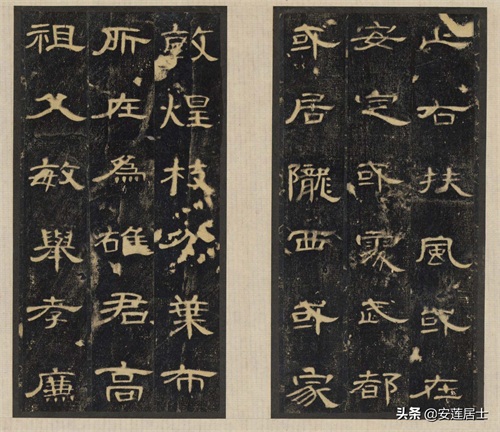 止右扶風或在
安定或處武都
或居隴西或家
敦煌枝分葉布
所在為雄君高
祖父敏舉孝廉
头条@安莲居士